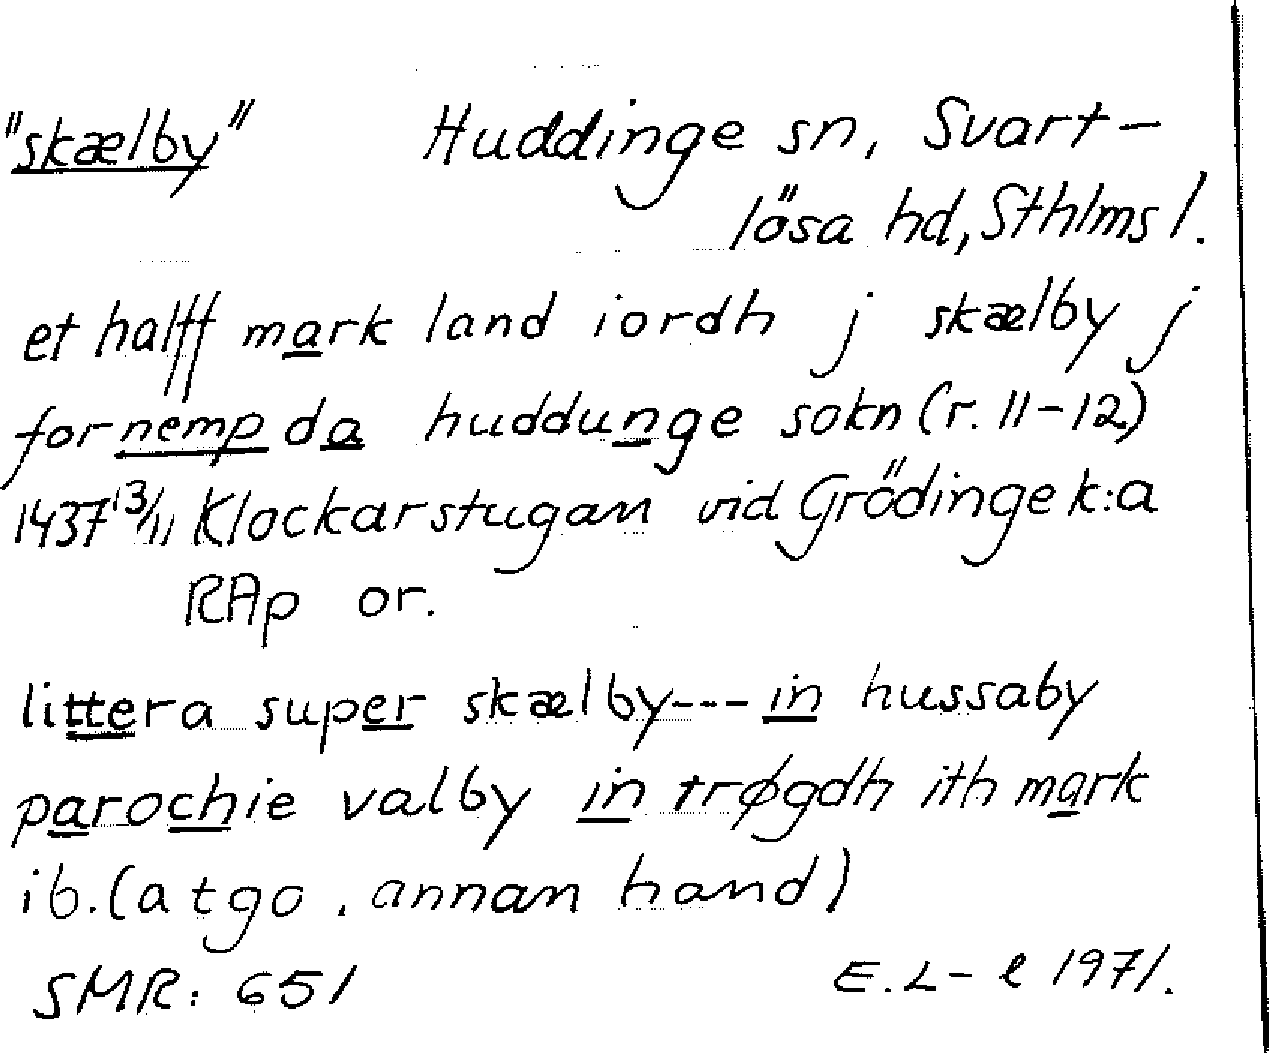 "skælby" Huddinge sn, Svart-
lösa hd, Sthlms l.
et halff mark land iordh j skælby j
fornempda huddunge sokn (r. 11-12)
1437 13/11 Klockarstugan vid Grödinge k:a
RAp or.
littera super skælby --- in hussaby
parochie valby in trøgdh ith mark
ib. (atgo, annan hand)
SMR: 651 E.L-l 1971.